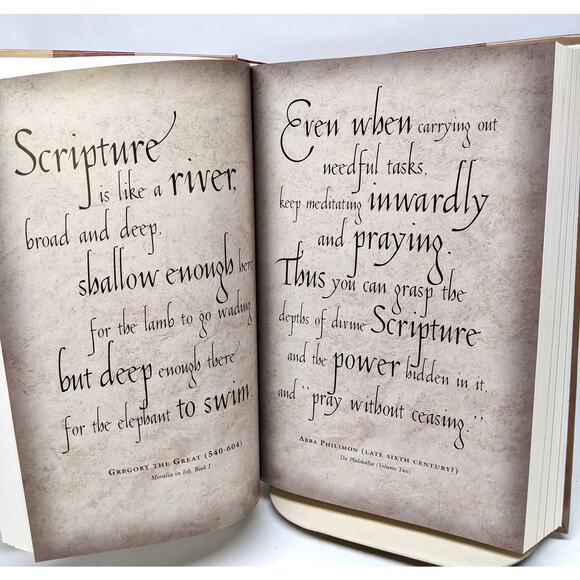 Scripture
is like a river,
broad and deep,
shallow enough here
for the lamb to go wading,
but deep enough there
for the elephant to swim.
GREGORY THE GREAT (540-604)
Moralia in Iob, Book I
Even when carrying out
needful tasks,
keep meditating inwardly
and praying.
Thus you can grasp the
depths of divine Scripture
and the power hidden in it,
and "pray without ceasing."
ABBA PHILIMON (LATE SIXTH CENTURY?)
The Philokalia (Volume Two)